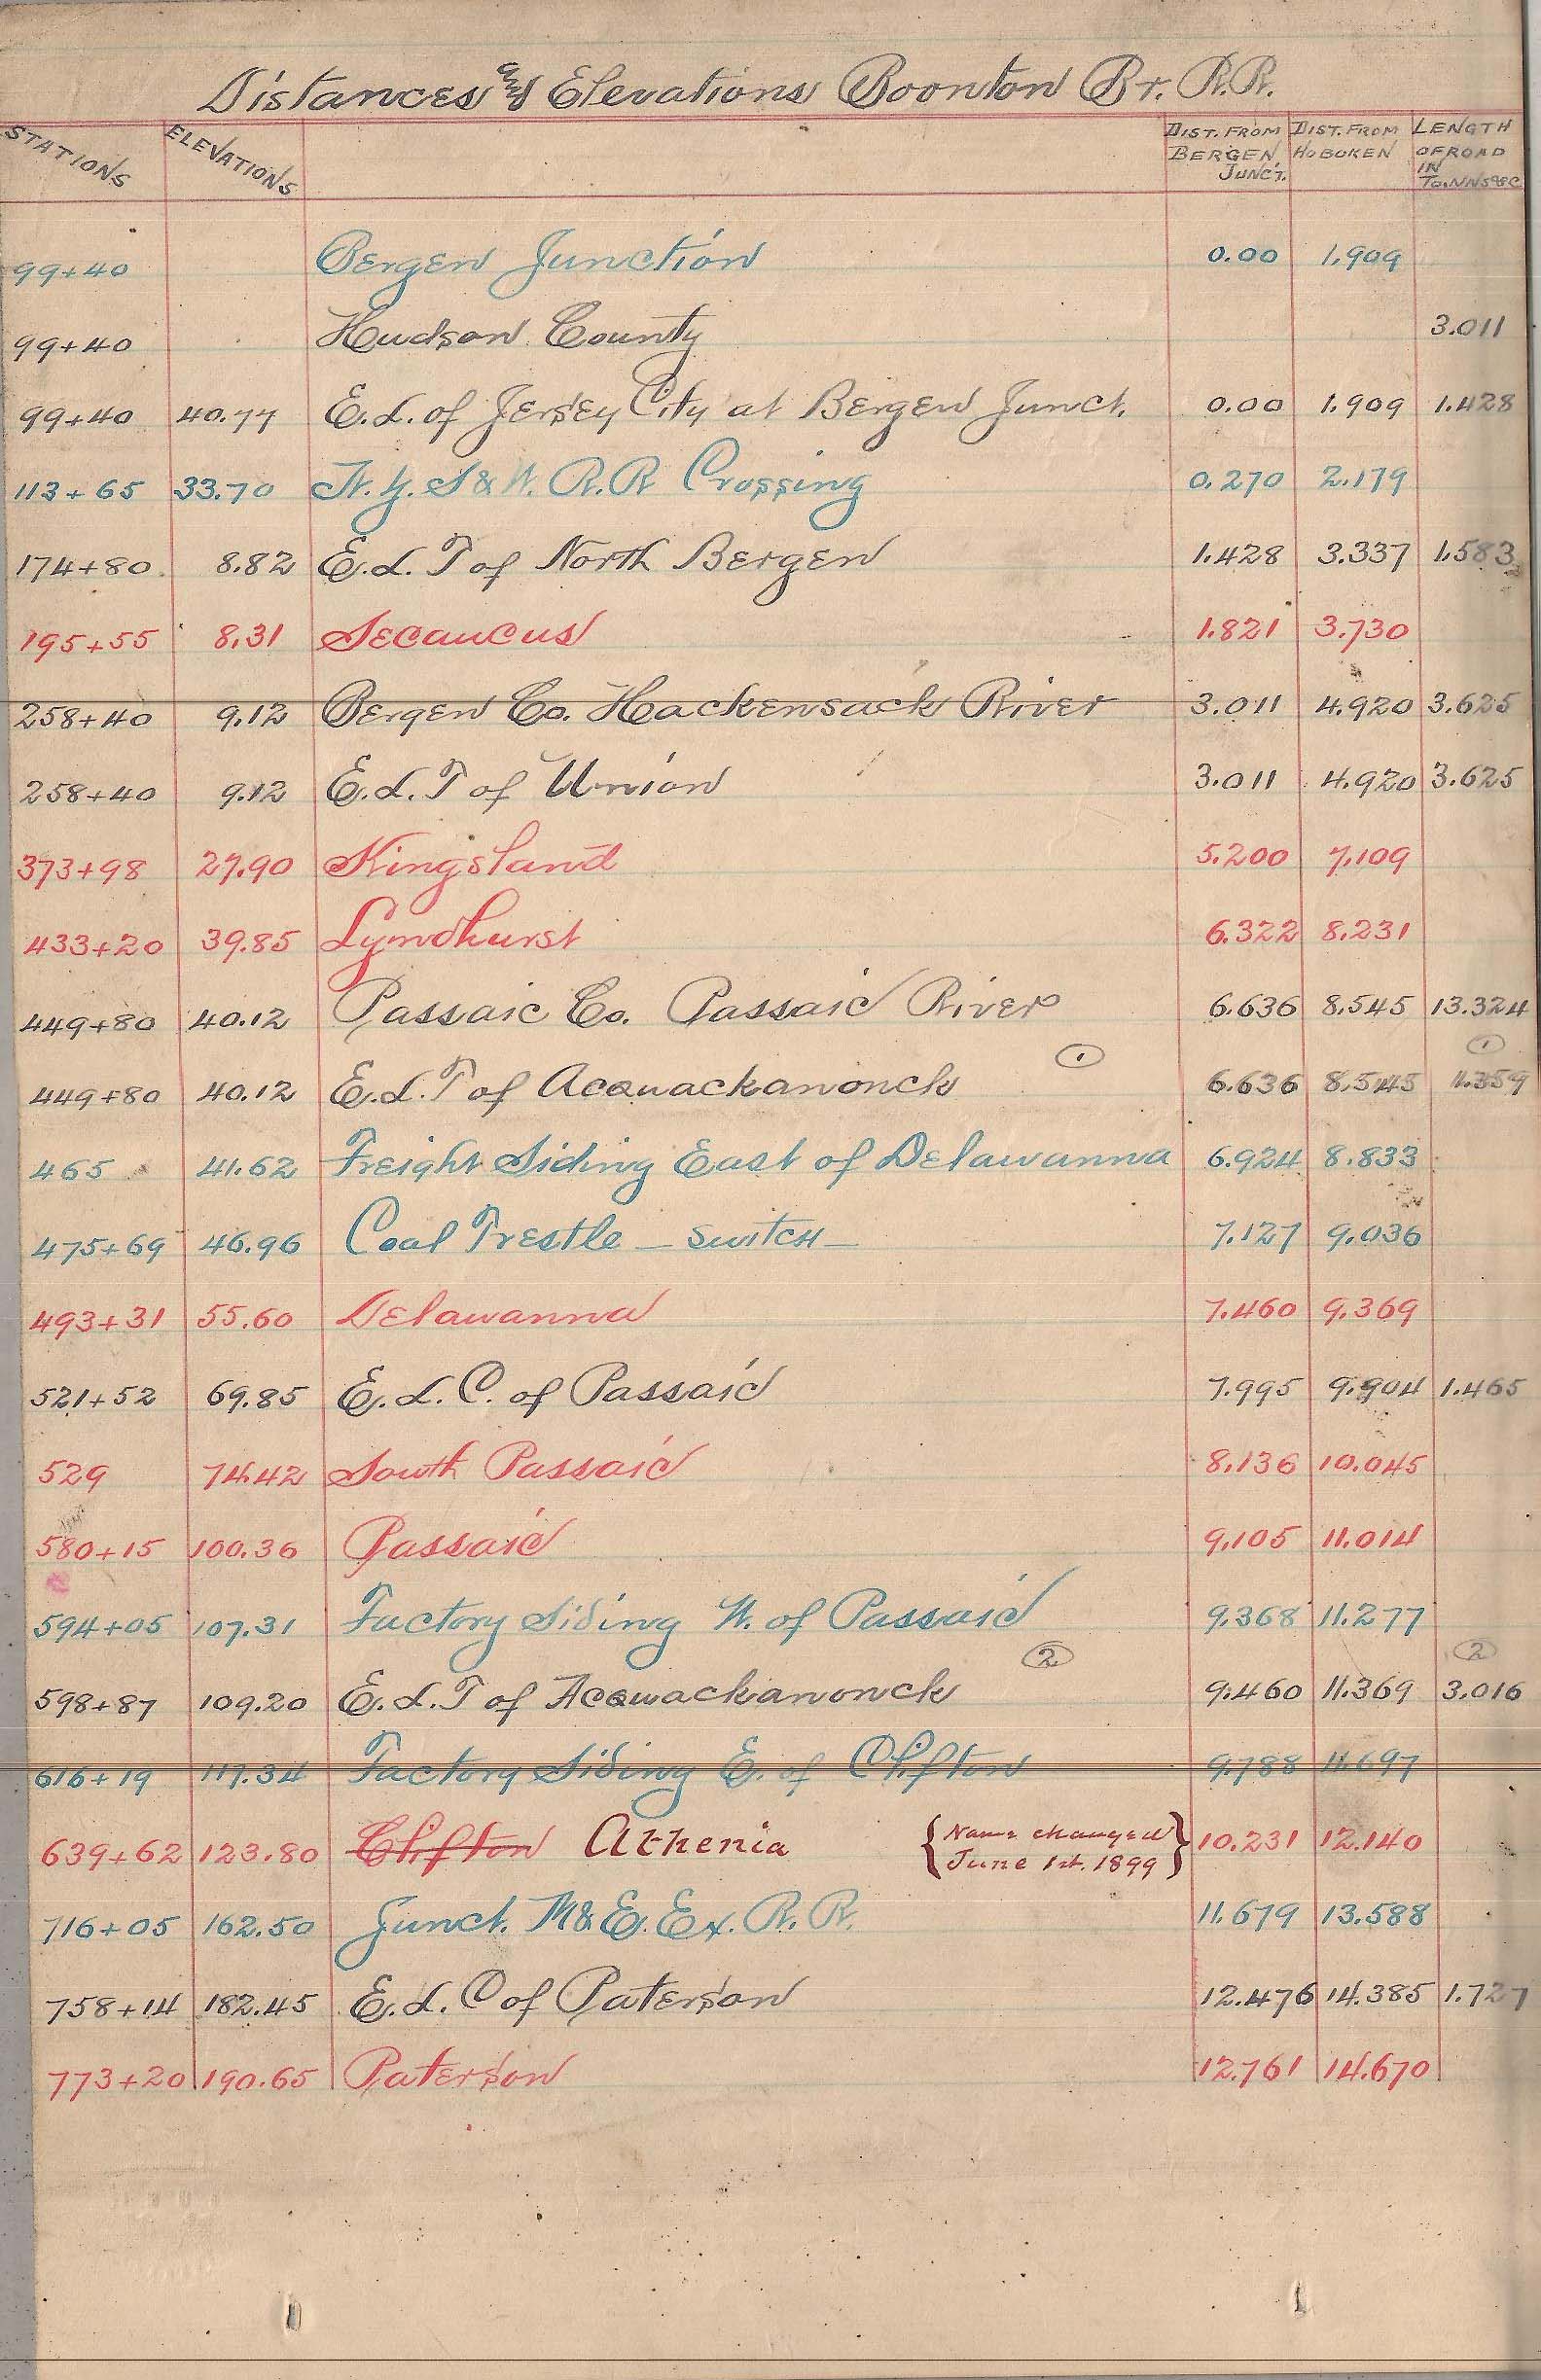 Distances and Elevations Boonton Br. R.R.
STATIONS ELEVATIONS DIST. FROM BERGEN JUNCT. DIST. FROM HOBOKEN LENGTH OF ROAD IN
99+40 Bergen Junction 0.00 1.909
99+40 Hudson County 3.011
99+40 40.77 E.L. of Jersey City at Bergen Junct. 0.00 1.909 1.428
113+65 33.70 N.Y. S & W. R.R Crossing 0.270 2.179
174+80 8.82 E.L. T of North Bergen 1.428 3.337 1.583
195+55 8.31 Secaucus 1.821 3.730
258+40 9.12 Bergen Co. Hackensack River 3.011 4.920 3.625
258+40 9.12 E.L. T of Union 3.011 4.920 3.625
373+98 27.90 Kingsland 5.200 7.109
433+20 39.85 Lyndhurst 6.322 8.231
449+80 40.12 Passaic Co. Passaic River 6.636 8.545 13.324
1 1
449+80 40.12 E.L. T of Acquackanonck 6.636 8.545 1.359
465 41.62 Freight Siding East of Delawanna 6.924 8.833
475+69 46.96 Coal Trestle – switch – 7.127 9.036
493+31 55.60 Delawanna 7.460 9.369
521+52 69.85 E.L. C. of Passaic 7.995 9.904 1.465
529 74.42 South Passaic 8.136 10.045
580+15 100.36 Passaic 9.105 11.014
594+05 107.31 Factory Siding W. of Passaic 9.368 11.277
2 2
598+87 109.20 E.L. T of Acquackanonck 9.460 11.369 3.016
616+19 117.34 Factory Siding E. of Clifton 9.788 11.697
639+62 123.80 Clifton Athenia { Name changed June 1st. 1899 } 10.231 12.140
716+05 162.50 Junct. M & E. Ex. R. R. 11.679 13.588
758+14 182.45 E.L. C of Paterson 12.476 14.385 1.727
773+20 190.65 Paterson 12.761 14.670